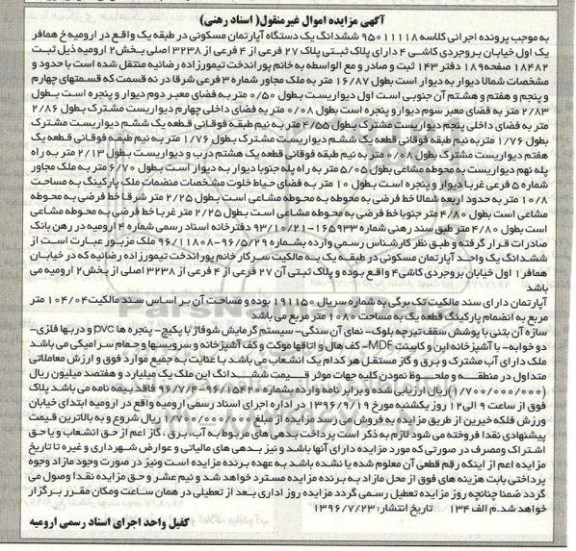 آگهی مزایده اموال غیرمنقول( اسناد رهنی)
به موجب پرونده اجرائی کلاسه ۹۵۰۱۱۱۱۸ ششدانگ یک دستگاه آپارتمان مسکونی در طبقه یک واقع در ارومیه خ همافر
یک اول خیابان بروجردی کاشی ۴ دارای پلاک ثبتی پلاک ۲۷ فرعی از ۴ فرعی از ۳۲۳۸ اصلی بخش۲ ارومیه ذیل ثبت
۱۸۴۸۲ صفحه۱۸۹ دفتر ۱۴۳ ثبت و صادر و مع الواسطه به خانم پوراندخت تیمورزاده رضائیه منتقل شده است با حدود و
مشخصات شمالا دیوار به دیوار است بطول ۱۶/۸۷ متر به ملک مجاور شماره ۳ فرعی شرقا در نه قسمت که قسمتهای چهارم
و پنجم و هفتم و هشتم آن جنوبی است اول دیواریست بطول ۰/۵۰ متر به فضای معبر دوم دیوار و پنجره است بطول
۲/۸۳ متر به فضای معبر سوم دیوار و پنجره است بطول ۰/۰۸ متر به فضای داخلی چهارم دیواریست مشترک بطول ۲/۸۶
متر به فضای داخلی پنجم دیواریست مشترک بطول ۴/۵۵ متر به نیم طبقه فوقانی قطعه یک ششم دیواریست مشترک
بطول ۱/۷۶ متر به نیم طبقه فوقانی قطعه یک ششم دیواریست مشترک بطول ۱/۷۶ متر به نیم طبقه فوقانی قطعه یک
هفتم دیواریست مشترک بطول ۰/۰۸ متر به نیم طبقه فوقانی قطعه یک هشتم درب و دیواریست بطول ۲/۱۳ متر به راه
پله نهم دیواریست به محوطه مشاعی بطول ۵/۰۵ متر به راه پله جنوبا دیوار به دیوار است بطول ۶/۷۰ متر به ملک مجاور
شماره ۵ فرعی غربا دیوار و پنجره است بطول ۱۰ متر به فضای حیاط خلوت مشخصات منضمات ملک پارکینگ به مساحت
۱۰/۸ متر به حدود اربعه شمالا خط فرضی به محوطه به محوطه مشاعی است بطول ۲/۲۵ متر شرقا خط فرضی به محوطه
مشاعی است بطول ۴/۸۰ متر جنوبا خط فرضی به محوطه مشاعی است بطول ۲/۲۵ متر غربا خط فرضی به محوطه مشاعی
است بطول ۴/۸۰ متر طبق سند رهنی شماره ۱۶۵۹۳۳-۹۳/۱۰/۲۱ دفترخانه اسناد رسمی شماره ۴ ارومیه در رهن بانک
صادرات قرار گرفته و طبق نظر کارشناس رسمی وارده بشماره ۹۶/۵/۲۹-۹۶/۱۱۸۰۸ ملک مزبور عبارت است از
ششدانگ یک واحد آپارتمان مسکونی در طبقه یک به مالکیت سرکار خانم پوراندخت تیمورزاده رضائیه که در خیابان
همافر۱ اول خیابان بروجردی کاشی۴ واقع بوده و پلاک ثبتی آن ۲۷ فرعی از ۴ فرعی از ۳۲۳۸ اصلی از بخش۲ ارومیه می
باشد
آپارتمان دارای سند مالکیت تک برگی به شماره سریال ۱۹۱۱۵۰ بوده و مساحت آن بر اساس سند مالکیت ۱۰۴/۰۴ متر
مربع به انضمام پارکینگ قطعه یک به مساحت ۱۰/۸۰ متر مربع می باشد
سازه آن بتنی با پوشش سقف تیرچه بلوک- نمای آن سنگی- سیستم گرمایش شوفاژ با پکیج- پنجره ها pvc و دربها فلزی-
دو خوابه- با آشپزخانه اپن و کابینت MDF- کف هال و اتاقها موکت و کف آشپزخانه و سرویسها و حمام سرامیکی می باشد
ملک دارای آب مشترک و برق و گاز مستقل هر کدام یک انشعاب می باشد با عنایت به جمیع موارد فوق و ارزش معاملاتی
متداول در منطقه و ملحوظ نمودن کلیه جهات موثر قیمت ششدانگ این ملک یک میلیارد و هفتصد میلیون ریال
(۱/۷۰۰/۰۰۰/۰۰۰)ریال ارزیابی شده و برابر نامه وارده بشماره ۹۶/۱۵۴۲۲-۹۶/۷/۴ فاقد بیمه نامه می باشد پلاک
فوق از ساعت ۹ الی۱۲ روز یکشنبه مورخ ۱۳۹۶/۹/۱۹ در اداره اجرای اسناد رسمی ارومیه واقع در ارومیه ابتدای خیابان
ورزش فلکه خیرین از طریق مزایده به فروش می رسد مزایده از مبلغ ۱/۷۰۰/۰۰۰/۰۰۰ ریال شروع و به بالاترین قیمت
پیشنهادی نقدا فروخته می شود لازم به ذکر است پرداخت بدهی های مربوط به آب، برق ، گاز اعم از حق انشعاب و یا حق
اشتراک و مصرف در صورتی که مورد مزایده دارای آنها باشد و نیز بدهی های مالیاتی و عوارض شهرداری و غیره تا تاریخ
مزایده اعم از اینکه رقم قطعی آن معلوم شده یا نشده باشد به عهده برنده مزایده است و نیز در صورت وجود مازاد وجوه
پرداختی بابت هزینه های فوق از محل مازاد به برنده مزایده مسترد خواهد شد و نیم عشر و حق مزایده نقدا وصول می
گردد ضمنا چنانچه روز مزایده تعطیل رسمی گردد مزایده روز اداری بعد از تعطیلی در همان ساعت و مکان مقرر برگزار
خواهد شد.م الف ۱۳۴ تاریخ انتشار: ۱۳۹۶/۷/۲۳
کفیل واحد اجرای اسناد رسمی ارومیه